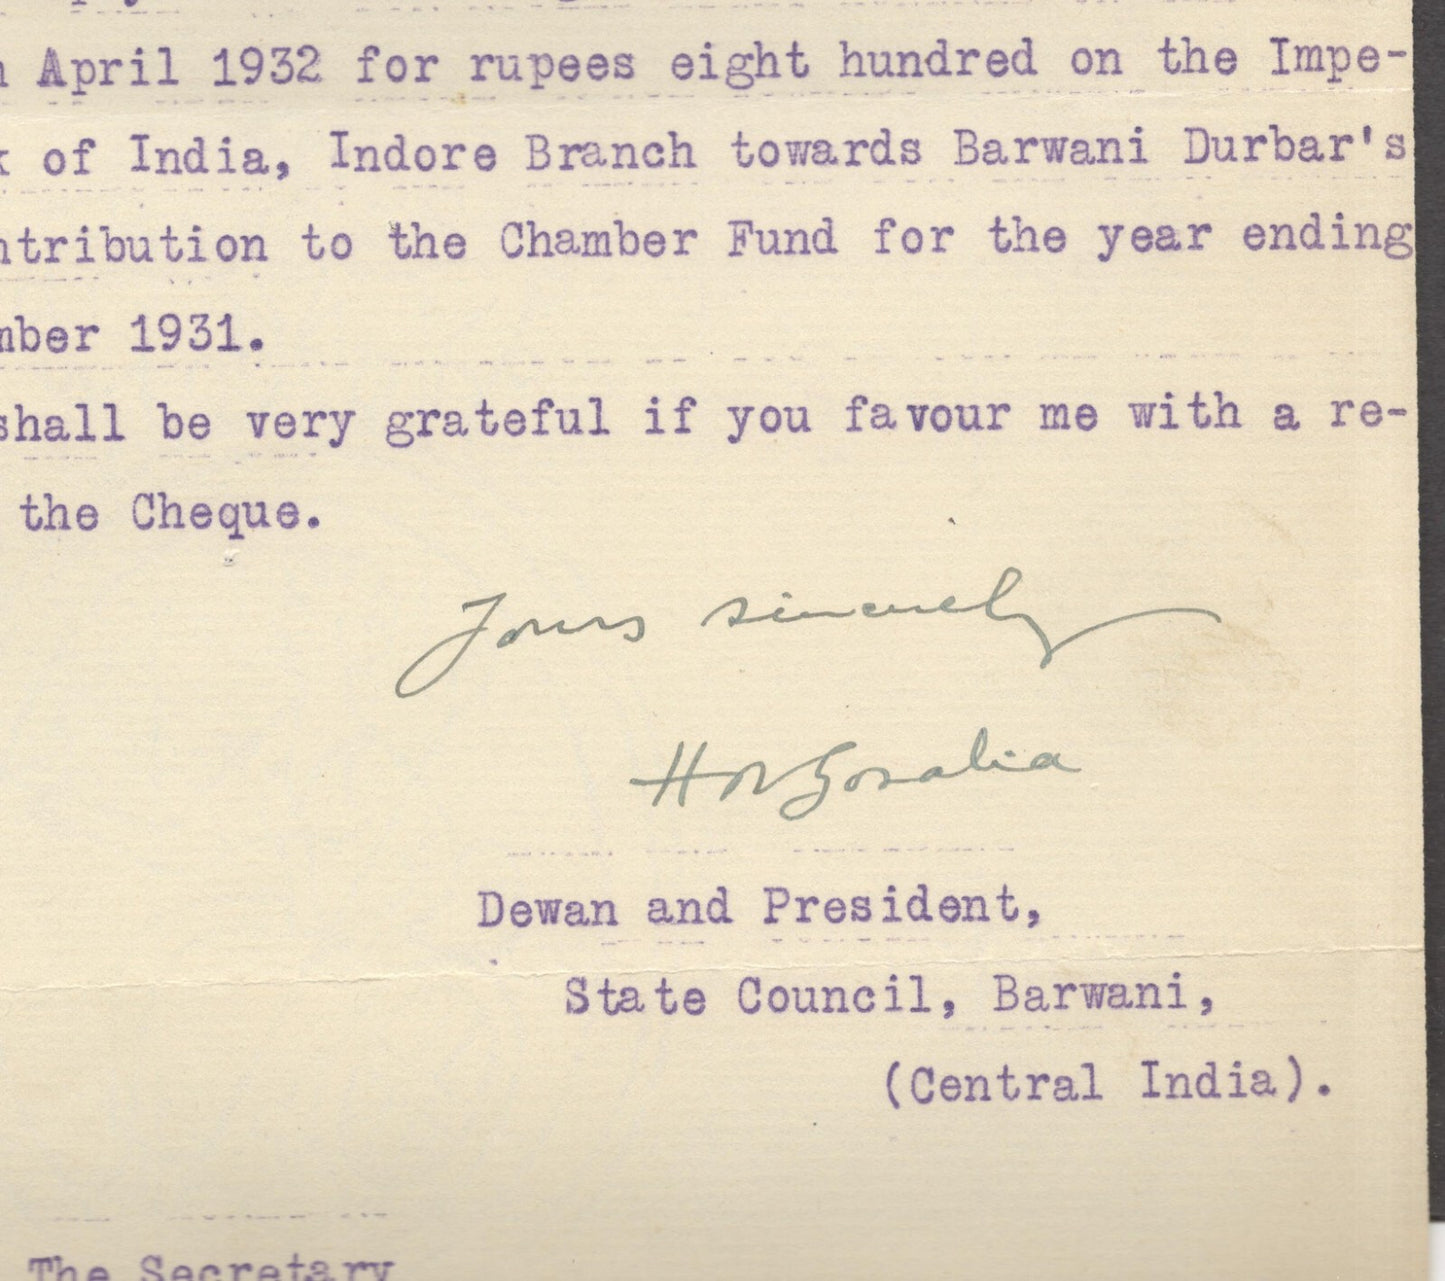 April 1932 for rupees eight hundred on the Impe-
of India, Indore Branch towards Barwani Durbar's
ntribution to the Chamber Fund for the year ending
mber 1931.
shall be very grateful if you favour me with a re-
the Cheque.
Yours sincerely
Dewan and President,
State Council, Barwani,
(Central India).
The Secretary